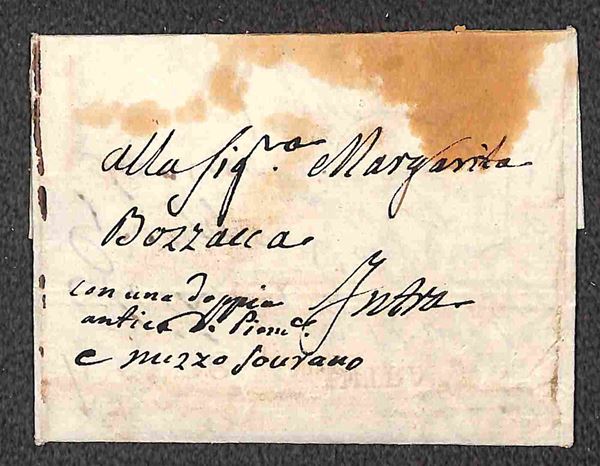 alla Sig.ra Margarita
Bozzacca
Intra
con una doppia
antica di Piem.te
e mezzo sovrano